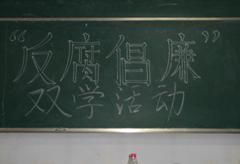 “反腐倡廉”
双学活动